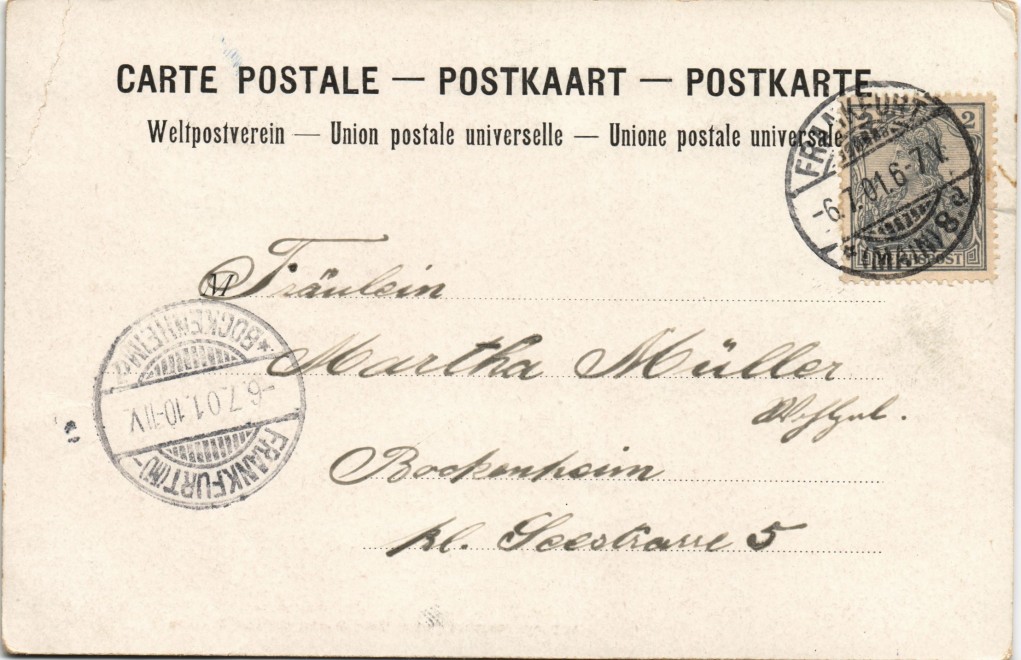 CARTE POSTALE — POSTKAART — POSTKARTE
Weltpostverein — Union postale universelle — Unione postale universale
FRANKFURT
-6.7.01.6-7V.
* (MAIN) 8.
2
REICHSPOST
Fräulein
Martha Müller
Bockenheim
kl. Seestrasse 5
* BOCKENHEIM
-6.7.01.10-11V.
FRANKFURT (M)-